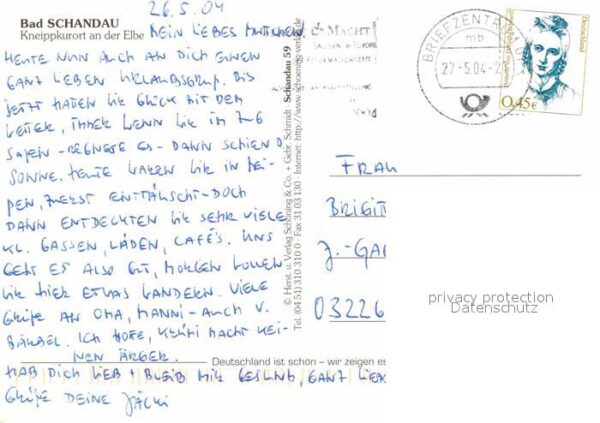 Bad SCHANDAU
Kneippkurort an der Elbe
26.5.04
MEIN LIEBES
HEUTE NUN AUCH AN DICH EINEN
GANZ LIEBEN URLAUBSGRUß. BIS
JETZT HATTEN WIR GLÜCK MIT DEM
WETTER, IMMER WENN WIR IM
SAßEN - REGNETE ES - DANN SCHIEN D.
SONNE. HEUTE WAREN WIR IN
ZUERST ENTTÄUSCHT - DOCH
DANN ENTDECKTEN WIR SEHR VIELE
KL. GASSEN, LÄDEN, CAFÉS. UNS
GEHT ES ALSO GUT, MORGEN WOLLEN
WIR HIER ETWAS WANDERN. VIELE
GRÜßE AN OMA, MANNI - AUCH V.
BÄRBEL. ICH HOFFE, MACHT KEI-
NEN ÄRGER.
HAB DICH LIEB + BLEIB MIR GESUND, GANZ LIEBE
GRÜßE DEINE
© Herst. u. Verlag Schöning & Co. + Gebr. Schmidt
Schandau 59
Tel. (04 51) 310 310 0 · Fax 31 03 130 · Internet: http://www.schoening-verlag.de
Deutschland ist schön – wir zeigen es
MACHT
BRIEFZENTRUM
mb
27-5.04-2
Deutschland
0,45€
FRAU
BRIGIT
J.-GA
03226
privacy protection
Datenschutz